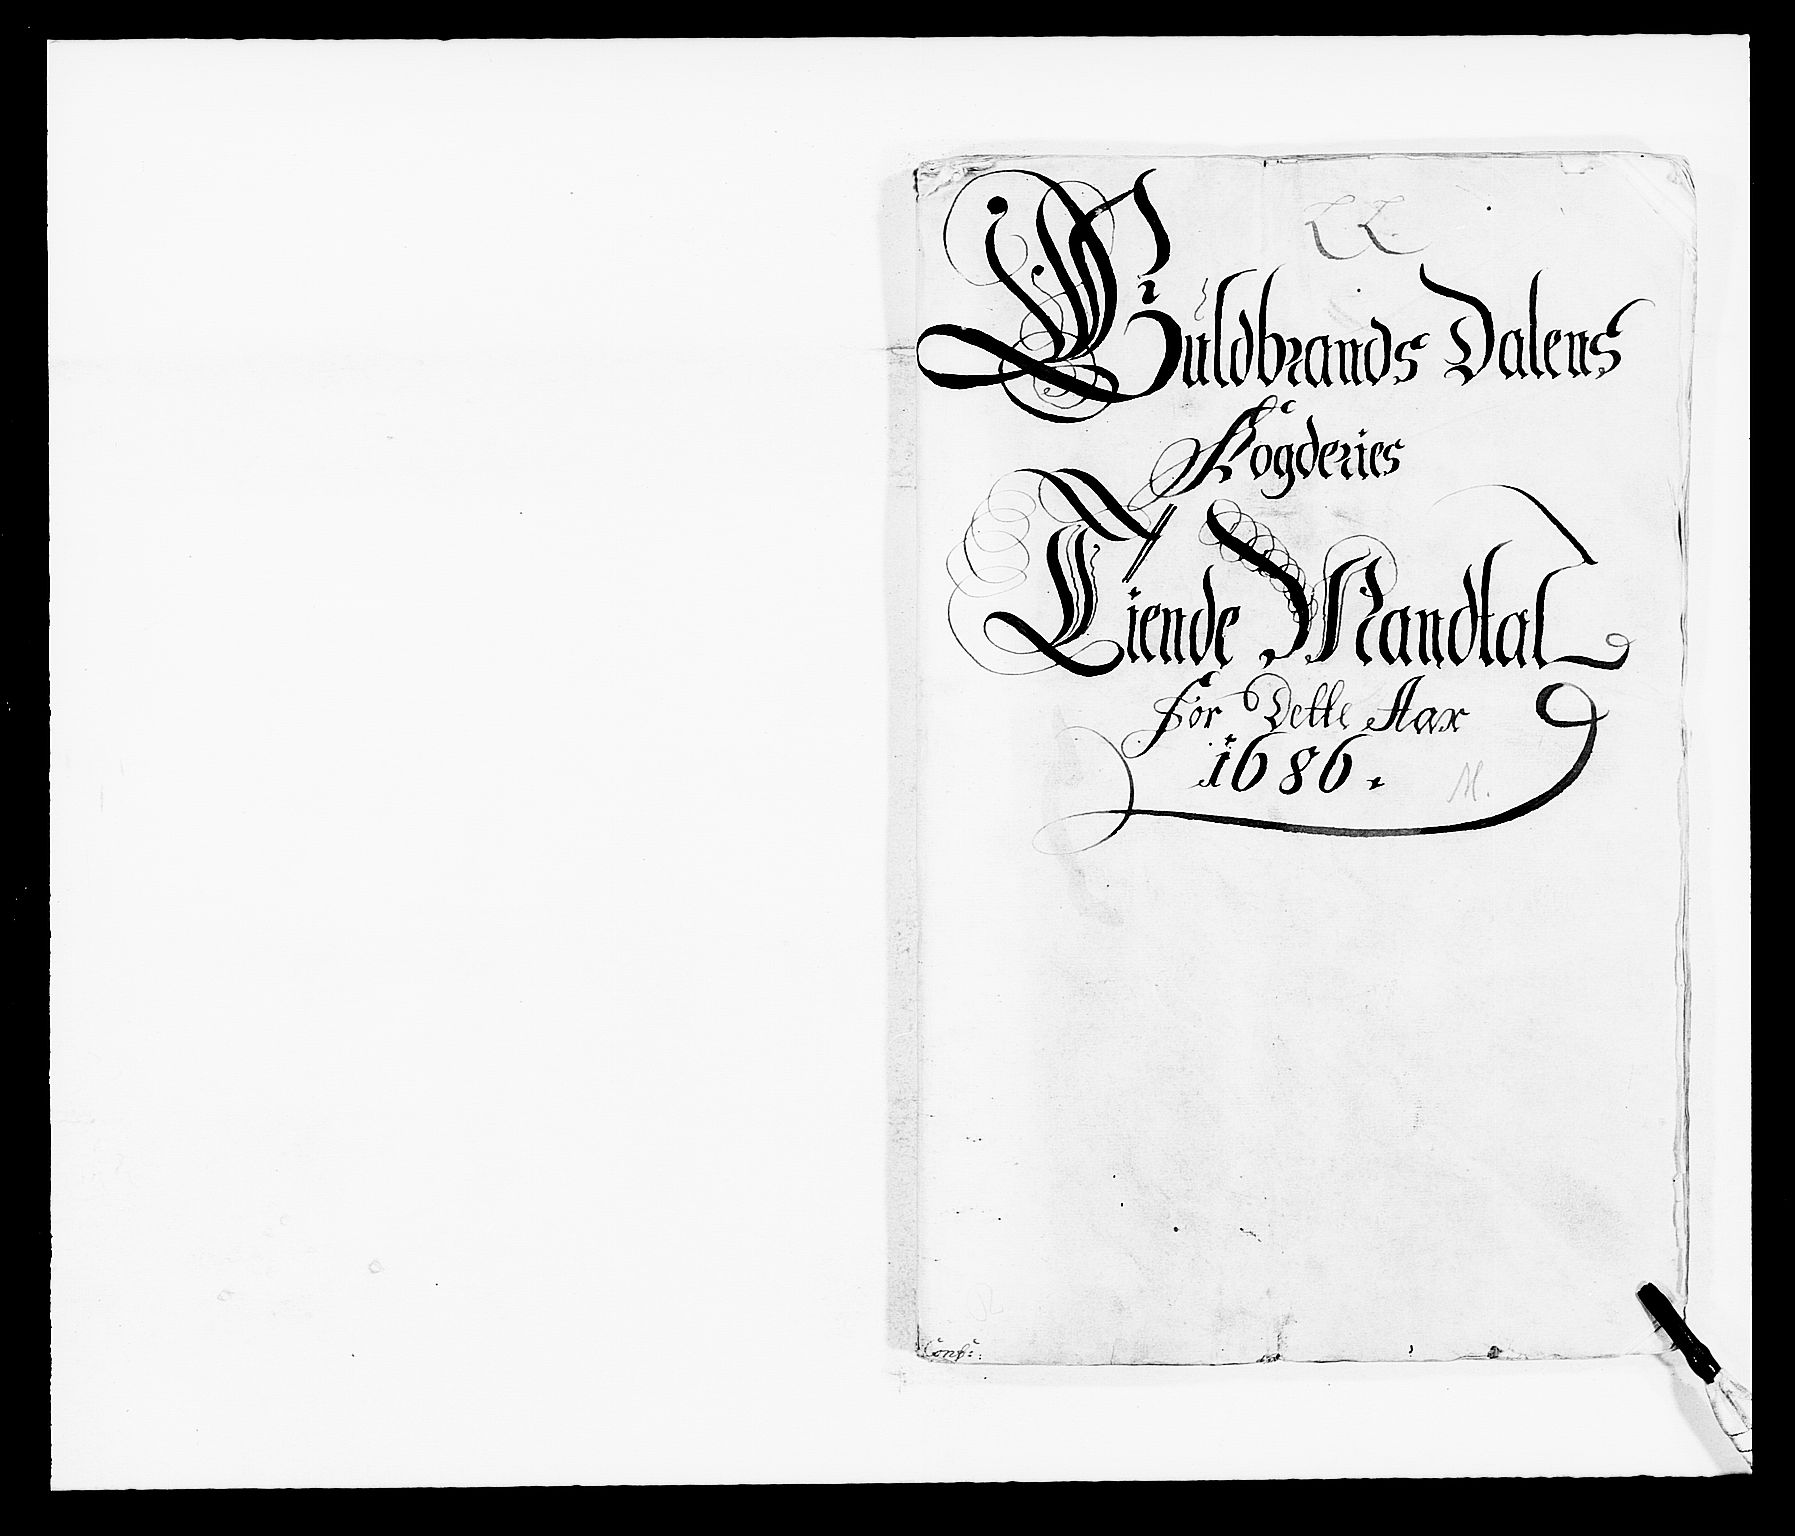 LL.
Guldbrands Dalens
Fogderies
Tiende Mandtal
for Dette Aar
1686.
M.